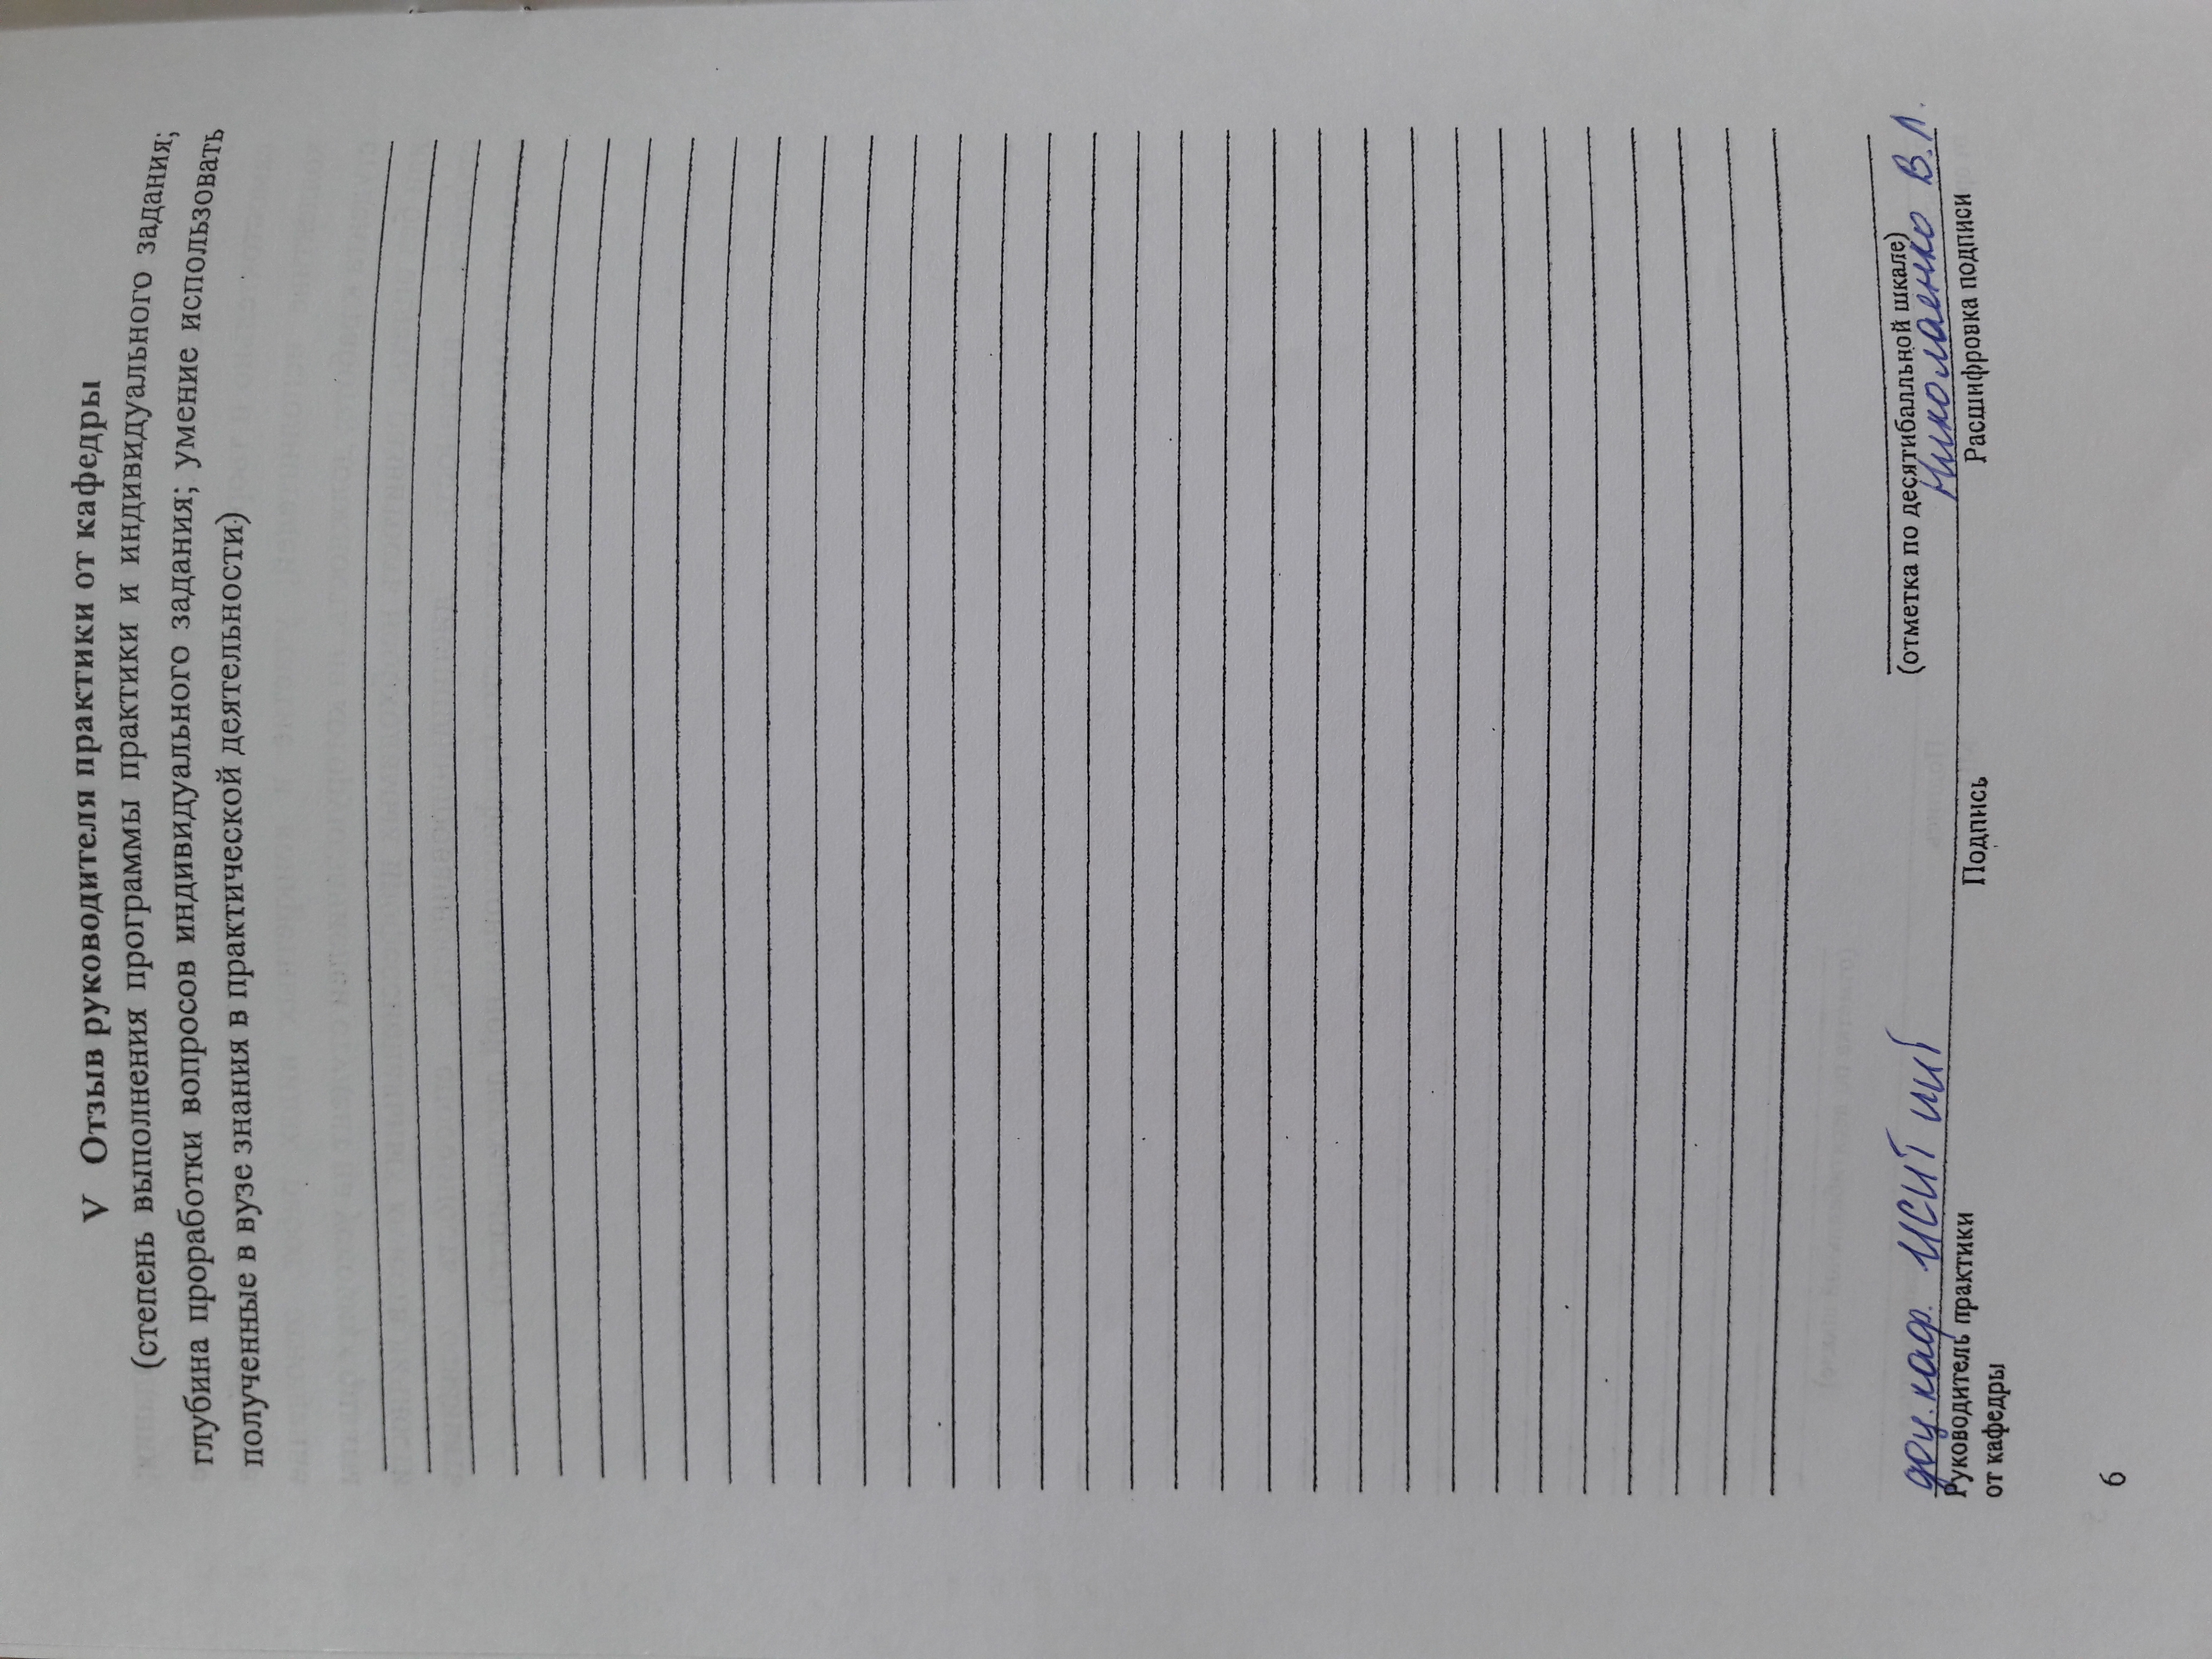 V Отзыв руководителя практики от кафедры
(степень выполнения программы практики и индивидуального задания;
глубина проработки вопросов индивидуального задания; умение использовать
полученные в вузе знания в практической деятельности)
(отметка по десятибалльной шкале)
доц. каф. ИСИТ иит Николаенко В. Л.
Руководитель практики Подпись Расшифровка подписи
от кафедры
6